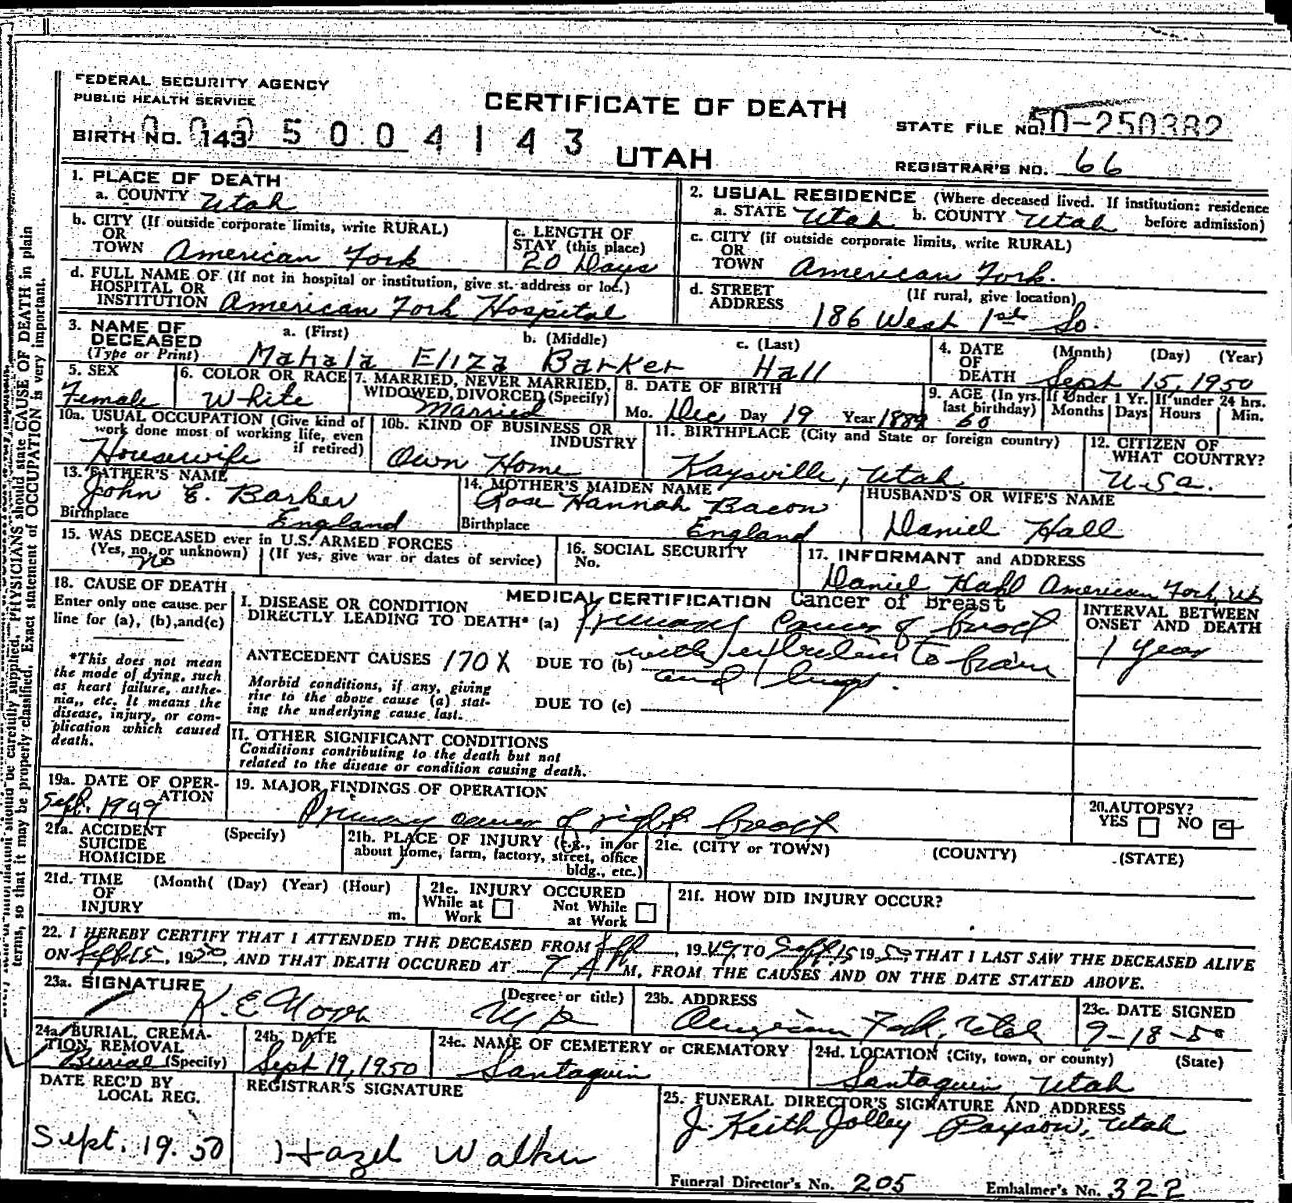 FEDERAL SECURITY AGENCY
PUBLIC HEALTH SERVICE
CERTIFICATE OF DEATH
STATE FILE NO. 50-250382
BIRTH NO. 143 5 0 0 4 1 4 3
UTAH
REGISTRAR'S NO. 66
1. PLACE OF DEATH
a. COUNTY Utah
2. USUAL RESIDENCE (Where deceased lived. If institution: residence before admission)
a. STATE Utah b. COUNTY Utah
b. CITY (If outside corporate limits, write RURAL) OR TOWN American Fork
c. LENGTH OF STAY (this place) 20 Days
c. CITY (if outside corporate limits, write RURAL) OR TOWN American Fork.
d. FULL NAME OF (If not in hospital or institution, give st. address or loc.) HOSPITAL OR INSTITUTION American Fork Hospital
d. STREET ADDRESS (If rural, give location) 186 West 1st So.
3. NAME OF DECEASED (Type or Print)
a. (First) b. (Middle) c. (Last)
Mahala Eliza Barker Hall
4. DATE OF DEATH (Month) (Day) (Year)
Sept 15, 1950
5. SEX Female
6. COLOR OR RACE White
7. MARRIED, NEVER MARRIED, WIDOWED, DIVORCED (Specify) Married
8. DATE OF BIRTH
Mo. Dec Day 19 Year 1889
9. AGE (In yrs. last birthday) 60
If Under 1 Yr. Months Days
If under 24 hrs. Hours Min.
10a. USUAL OCCUPATION (Give kind of work done most of working life, even if retired) Housewife
10b. KIND OF BUSINESS OR INDUSTRY Own Home
11. BIRTHPLACE (City and State or foreign country) Kaysville, Utah
12. CITIZEN OF WHAT COUNTRY? U.S.a.
13. FATHER'S NAME John E. Barker
Birthplace England
14. MOTHER'S MAIDEN NAME Rose Hannah Bacon
Birthplace England
HUSBAND'S OR WIFE'S NAME
Daniel Hall
15. WAS DECEASED ever in U.S. ARMED FORCES
(Yes, no, or unknown) (If yes, give war or dates of service)
no
16. SOCIAL SECURITY No.
17. INFORMANT and ADDRESS
Daniel Hall American Fork, Ut
18. CAUSE OF DEATH
Enter only one cause per line for (a), (b), and (c)
MEDICAL CERTIFICATION Cancer of Breast
I. DISEASE OR CONDITION DIRECTLY LEADING TO DEATH* (a) Primary Cancer of breast
INTERVAL BETWEEN ONSET AND DEATH
1 year
*This does not mean the mode of dying, such as heart failure, asthenia,, etc. It means the disease, injury, or complication which caused death.
ANTECEDENT CAUSES 170X DUE TO (b) with extension to brain
and lungs.
Morbid conditions, if any, giving rise to the above cause (a) stating the underlying cause last.
DUE TO (c)
II. OTHER SIGNIFICANT CONDITIONS
Conditions contributing to the death but not related to the disease or condition causing death.
19a. DATE OF OPERATION
Sept. 1949
19. MAJOR FINDINGS OF OPERATION
Primary cancer of right breast
20. AUTOPSY?
YES NO
21a. ACCIDENT SUICIDE HOMICIDE (Specify)
21b. PLACE OF INJURY (e.g., in or about home, farm, factory, street, office bldg., etc.)
21c. (CITY or TOWN) (COUNTY) (STATE)
21d. TIME OF INJURY (Month( (Day) (Year) (Hour) m.
21e. INJURY OCCURED
While at Work Not While at Work
21f. HOW DID INJURY OCCUR?
22. I HEREBY CERTIFY THAT I ATTENDED THE DECEASED FROM Sept, 1949, TO Sept 15 1950 THAT I LAST SAW THE DECEASED ALIVE
ON Sept 15, 1950, AND THAT DEATH OCCURED AT 9 A M, FROM THE CAUSES AND ON THE DATE STATED ABOVE.
23a. SIGNATURE (Degree or title)
K. E. M D
23b. ADDRESS
American Fork, Utah
23c. DATE SIGNED
9-18-50
24a. BURIAL, CREMATION, REMOVAL (Specify)
Burial
24b. DATE
Sept 19, 1950
24c. NAME OF CEMETERY or CREMATORY
Santaquin
24d. LOCATION (City, town, or county) (State)
Santaquin, Utah
DATE REC'D BY LOCAL REG.
Sept. 19. 50
REGISTRAR'S SIGNATURE
Hazel Walker
25. FUNERAL DIRECTOR'S SIGNATURE AND ADDRESS
J. Keith Jolley Payson, Utah
Funeral Director's No. 205 Embalmer's No. 322
PHYSICIANS should state CAUSE OF DEATH in plain
terms, so that it may be properly classified. Exact statement of OCCUPATION is very important.